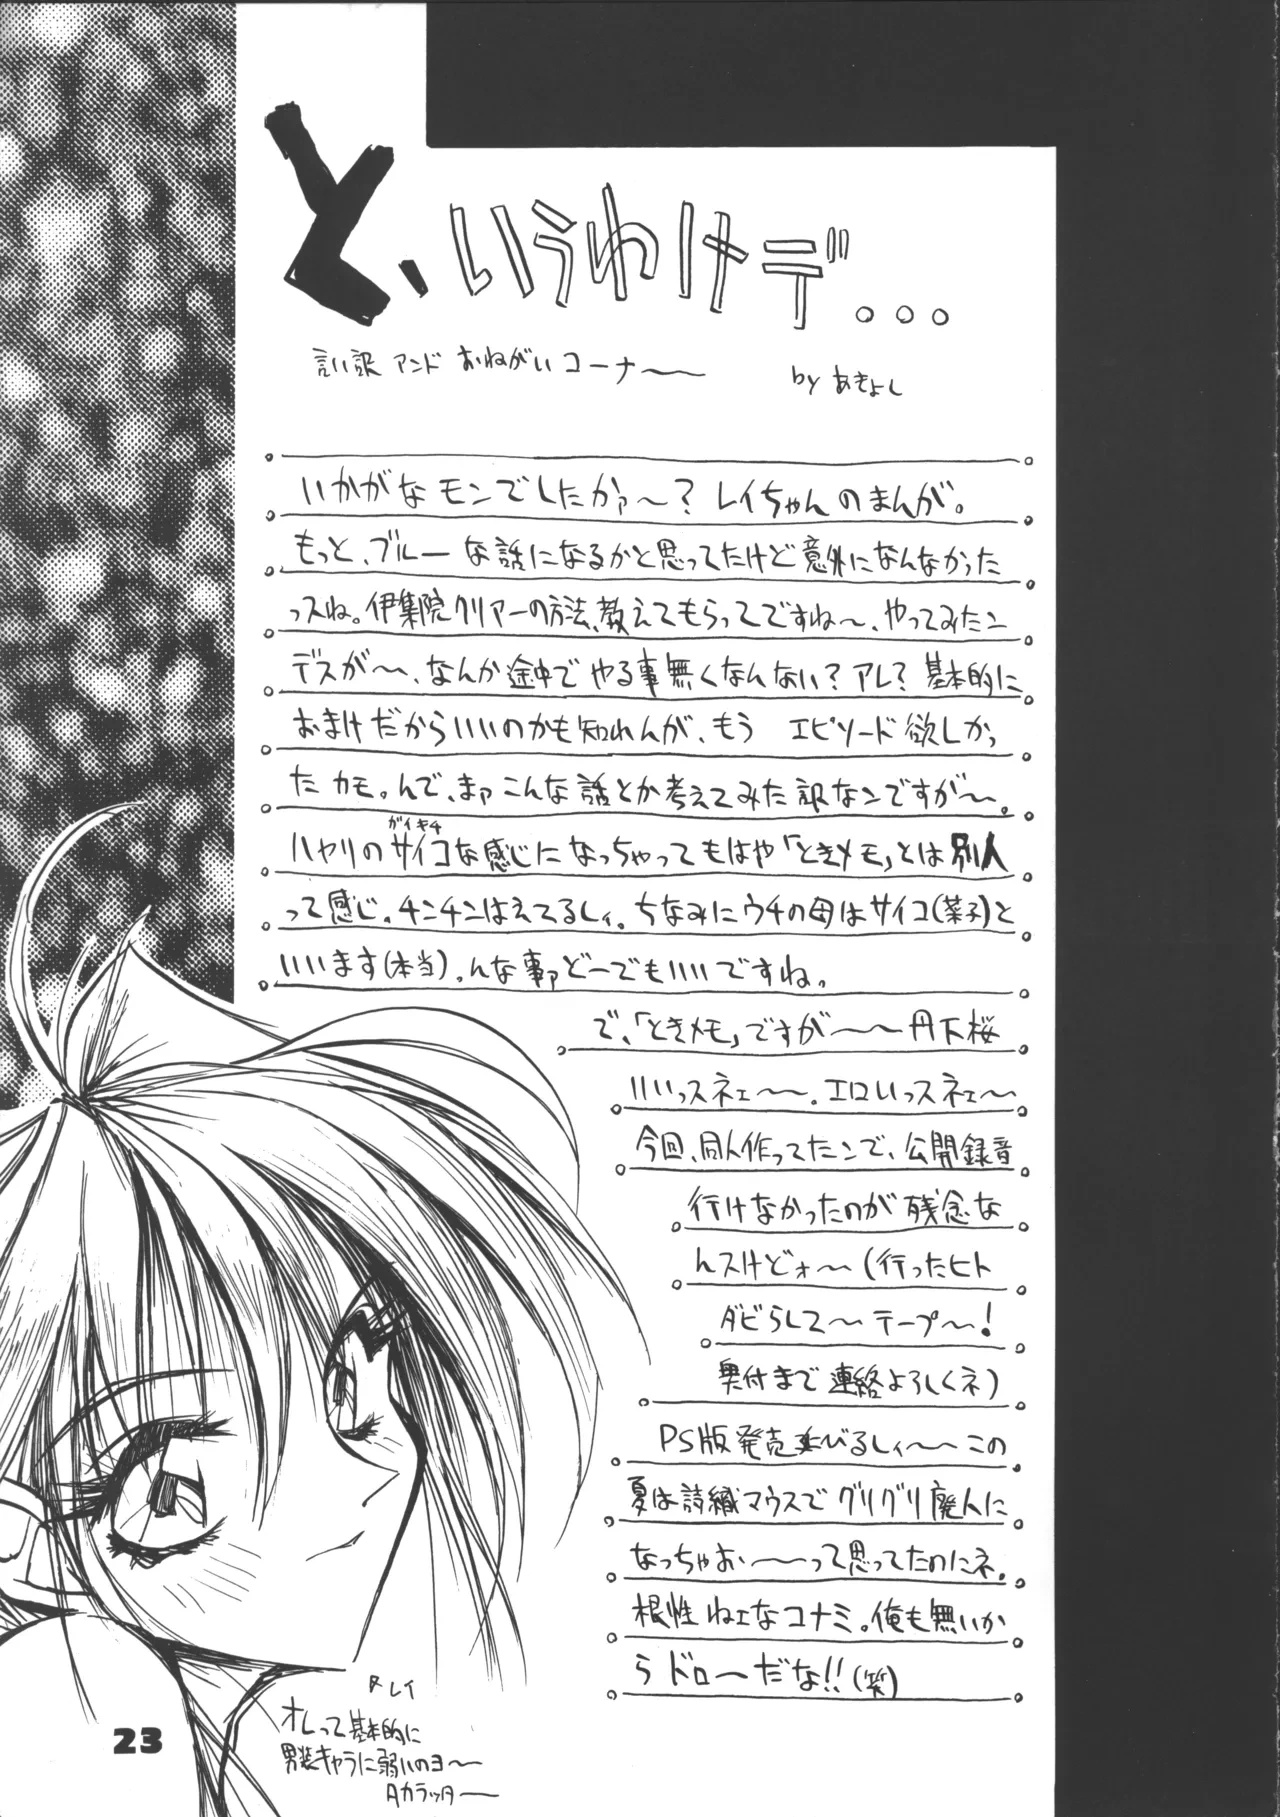 と、いうわけデ...
言い訳 アンド おねがい コーナ〜〜
by あきよし
いかがなモンでしたかァ〜？ レイちゃんのまんが。
もっと、ブルーな話になるかと思ってたけど意外になんなかった
っスね。伊集院クリアーの方法、教えてもらってですね〜、やってみたン
デスが〜、なんか途中でやる事無くなんない？アレ？ 基本的に
おまけだからいいのかも知れんが、もう エピソード欲しかっ
た カモ。んで、まァこんな話とか考えてみた訳なンですが〜。
ガイキチ
ハヤリのサイコな感じになっちゃってもはや「ときメモ」とは別人
って感じ。チンチンはえてるしィ。ちなみにウチの母はサイコ(菜子)と
いいます(本当)。んな事ァどーでもいいですね。
で、「ときメモ」ですが〜〜丹下桜
いいっスネェ〜〜。エロいっスネェ〜
今回、同人作ってたンで、公開録音
行けなかったのが残念な
んスけどォ〜 (行ったヒト
ダビらして〜 テープ〜！
奥付まで連絡よろしくネ)
PS版発売延びるしィ〜〜この
夏は詩織マウスでグリグリ廃人に
なっちゃおー〜〜って思ってたのにネ。
根性ねェなコナミ。俺も無いか
らドローだな!! (笑)
レイ
オレって基本的に
男装キャラに弱いのヨ〜
Aカラッタ〜
23